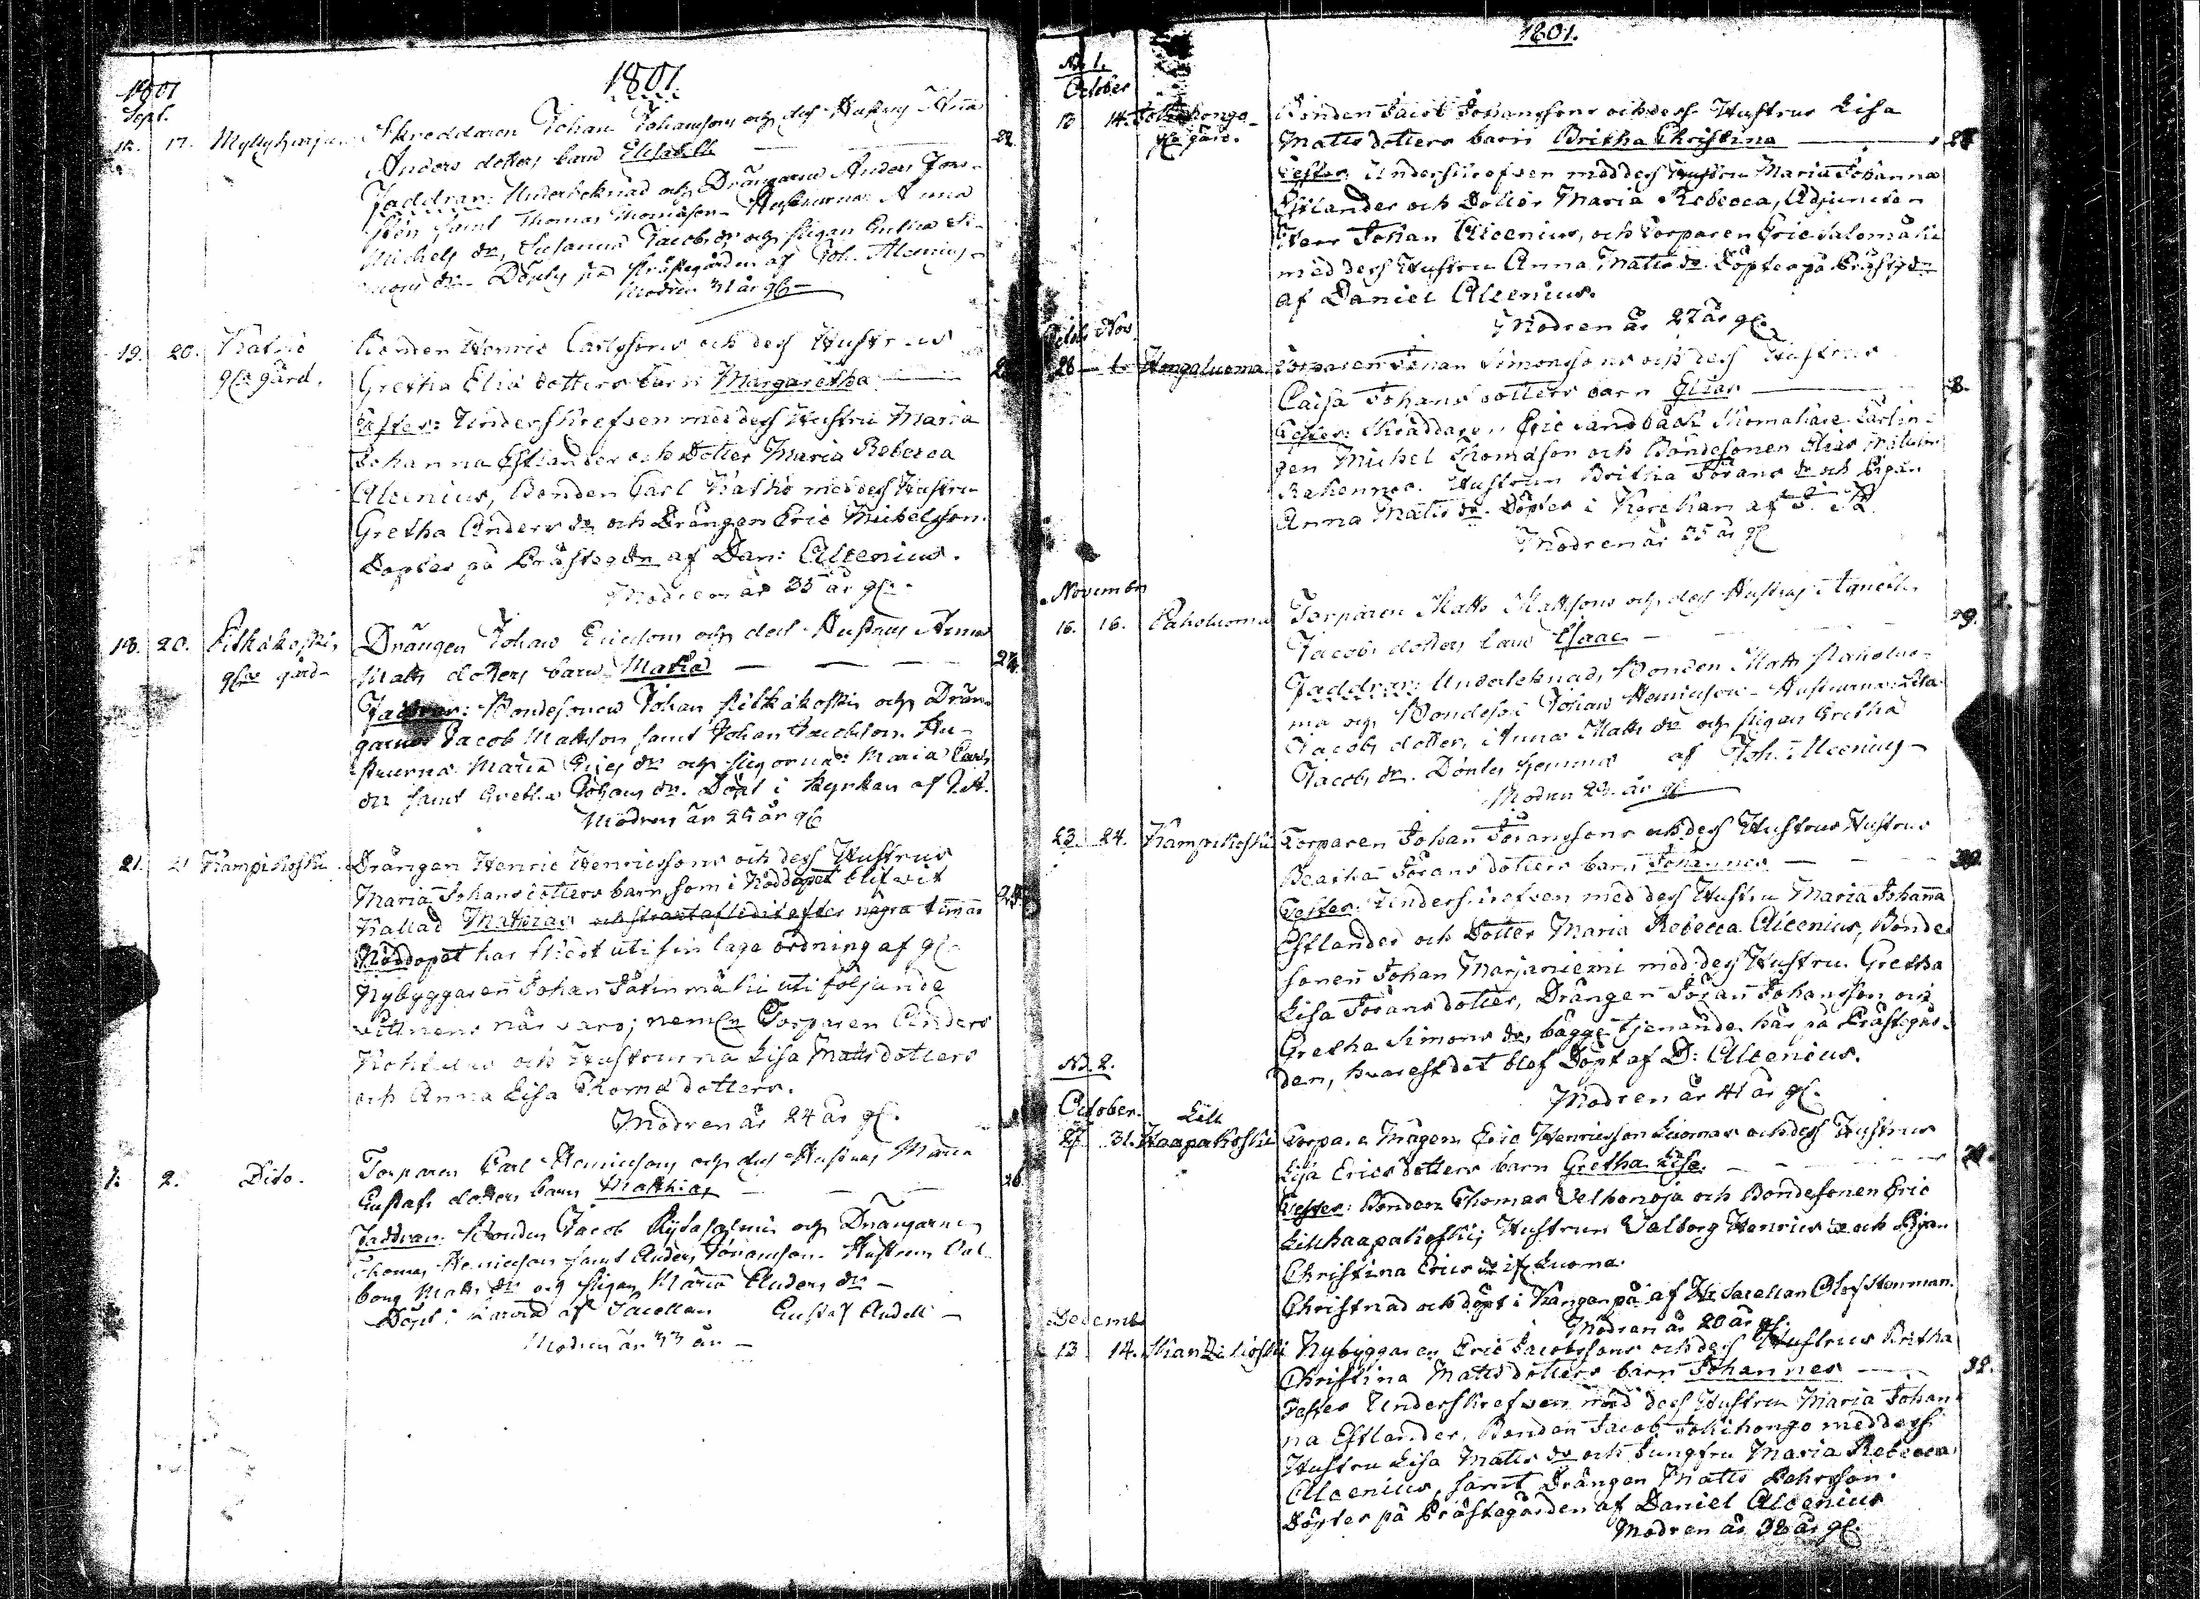 1801
1801.
Sept.
12. 17. Myllyharju Skreddaren Johan Johansons och des Hustrus Anna
Anders dotters barn Elisabeth — 22.
Faddrar: Undertecknad och Drängarne Anders
samt Thomas Thomason. Hustrurna: Anna
Michels dr, Susanna Jacobs dr och pigan
dr. Döptes på Prästegården af Joh. Alcenius
Modren 31 år gl.
19. 20. Katkio Bonden Henric Carlssons och dess Hustrus
gla gård. Gretha Elia dotters barn Margaretha —
Testes: Underskrefven med dess Hustru Maria
Johanna Estlander och Dotter Maria Rebecca
Alcenius, Bonden Carl Katkio med dess Hustru
Gretha Anders dr och Drängen Eric Michelsson.
Döptes på Prästegdn af Dan: Alcenius.
Modren är 35 år gl.
18. 20. Pitkäkoski Drängen Johan Ericsons och des Hustrus Anna
gla gård Matts dotters barn Maria — 24.
Faddrar: Bondesonen Johan Pitkäkoski och Drän-
garne Jacob Mattson, samt Johan Jacobson. Hu-
strurna Maria Erics dr och pigorna: Maria Carls
dr samt Gretha Johans dr. Döpt i Kyrkan af J. A.
Modren är 25 år gl.
21. 21 Kampikoski. Drängen Henric Henricssons och dess Hustrus
Maria Johans dotters barn, som i Nöddopet blifvit 25.
Kallad Mathias och straxt aflidit efter några timar
Nöddopet har skedt uti sin laga ordning af gl.
Nybyggaren Johan Jätinmäki uti följande
vittnens när varo; nemln Torparen Anders
och Hustrurna Lisa Matts dotters
och Anna Lisa Thomæ dotters.
Modren är 24 år gl.
1. 2. Dito. Torparen Carl Henricsons och des Hustrus Maria
Gustafs dotters barn Matthias — 26.
Faddrar: Bonden Jacob Kytösalmi och Drängarne
Thomas Henricson samt Anders Göranson. Hustrun Val-
borg Matts dr och pigan Maria Anders dr —
Döpt i af Sacellan Gustaf Audell —
Modren är 33 år —
1801.
No. 1.
October
13 14. Jokihongo Bonden Jacob Johanssons och dess Hustrus Lisa
gla gård. Matts dotters barn Britha Christina — 27
Testes: Underskrefven med dess Hustru Maria Johanna
Estlander och Dotter Maria Rebecca, Adjuncten
Herr Johan Alcenius, och Torparen Eric Salomäki
med dess Hustru Anna Matts dr Döptes på Prästgdn
af Daniel Alcenius.
Modren är 27 år gl.
Octob. Nov.
26 — 1 Hongaluoma Torparen Johan Simonssons och dess Hustrus
Caisa Johans dotters barn Elias — 8.
Testes: Skräddaren Eric Sandbäck Skomakare Lärlin-
gen Michel Thomasson och Bondesonen Elias
Hustrun Britha Görans dr och Pigan
Anna Matts dr. Döptes i Kyrckan af J. A.
Modren är 35 år gl
November
16. 16. Paholuoma Torparen Matts Mattsons och des Hustrus Agneta
Jacobs dotters barn Isaac — 29.
Faddrar: Undertecknad, Bonden Matts Paholuo-
ma och Bondeson Johan Henricson. Hustrurna: Lisa
Jacobs dotter, Anna Matts dr och pigan Gretha
Jacobs dr. Döptes hemma af Joh. Alcenius —
Modren 29. år gl
23 24. Kampikoski Torparen Johan Göranssons och dess Hustrus Hustrus
Beatha Görans dotters barn Johannes — 30.
Testes: Underskrefven med dess Hustru Maria Johanna
Estlander och Dotter Maria Rebecca Alcenius, Bonde
sonen Johan Marjaniemi med dess Hustru Gretha
Lisa Görans dotter, Drängen Göran Johansson och
Gretha Simons dr, bägge tjenande här på Prästegår-
den, hvarest det blef Döpt af D: Alcenius.
Modren är 41 år gl.
No. 2.
October. Lill
27. 31. Haapakoski Torpare Mågen Eric Henricsson Luomas och dess Hustrus
Lisa Erics dotters barn Gretha Lisa. —
Testes: Bonden Thomas Velhonoja och Bondesonen Eric
Lillhaapakoski; Hustrun Valborg Henrics dr och Pigan
Christina Erics dr if. Luoma.
Christnad och döpt i Kangonpä af Hr Sacellan Olof Stenman.
Modren är 20 år gl.
Decemb.
13 14. Nybyggaren Eric Jacobssons och dess Hustrus Britha
Christina Matts dotters barn Johannes — 32.
Testes Underskrefven med dess Hustru Maria Johan-
na Estlander, Bonden Jacob Jokihongo med dess
Hustru Lisa Matts dr och Jungfru Maria Rebecca
Alcenius, samt Drängen Matts
Döptes på Prästegården af Daniel Alcenius
Modren är 32 år gl.